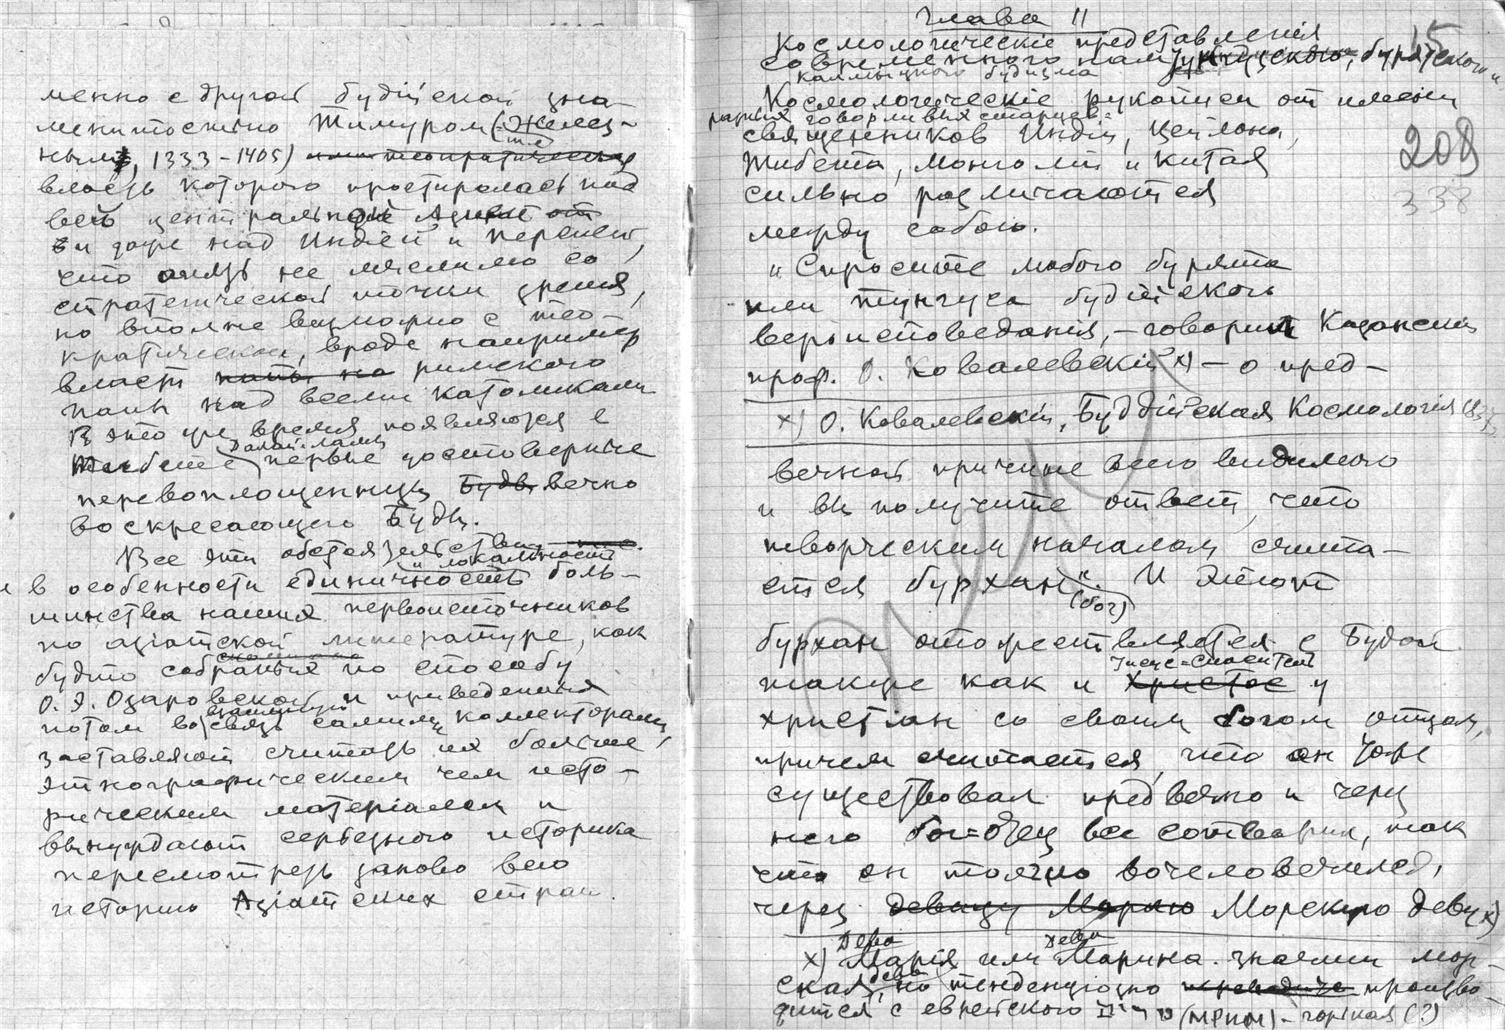 менно с другой будійской зна-
менитостью Тимуром (-Желез-
ным, 1333-1405)
власть которого простиралась над
всей центральной Азией
и даже над Индией и Персией,
что опять не мыслимо со
стратегической точки зрения,
но вполне возможно с тео-
кратической, вроде например
власти папы на римского
папы над всеми католиками
В это же время появляются в
Далай-ламы
Тибете первые достоверные
перевоплощенцы Будды вечно
воскресающего Будды.
Все эти обстоятельства
и локальность
и в особенности единичность боль-
шинства наших первоисточников
по азіатской литературе, как
будто собранных по способу
О. Э. Озаровской и приведенных
потом во взаимную связь самими коллекторами,
заставляют считать их больше
этнографическим чем исто-
рическим матеріалом и
вынуждают серьезного историка
пересмотреть заново всю
историю Азіатских стран.
Глава II
Космологическіе представленія
современного нам тунгузского, бурятского и
калмыцкого будизма
Космологическіе рукописи от имени
разных говорливых старцев:
священников Индіи, Цейлона,
Тибета, Монголіи и Китая
сильно различаются
между собою.
15
208
338
"Спросите любого бурята
или тунгуса будійского
вероисповеданія, - говорит Казанскій
проф. О. Ковалевскій x) - о пред-
x) О. Ковалевскій, Буддійская Космологія 1837
вечной причине всего видимого
и вы получите ответ, что
творческим началом счита-
ется бурхан". И этот
(бог)
бурхан отожествляется с Будой
также как и Христос у
Іисус=спаситель
христіан со своим богом отцом,
причем считается, что он уже
существовал предвечно и через
него бог=отец все сотворил, так
что он только вочеловечился,
через девицу Марию Морскую деву x)
x) Дева Марія или Дева Марина значит мор-
ская дева, но тенденціозно произво-
дится с еврейского (МРИМ) - горькая (?)